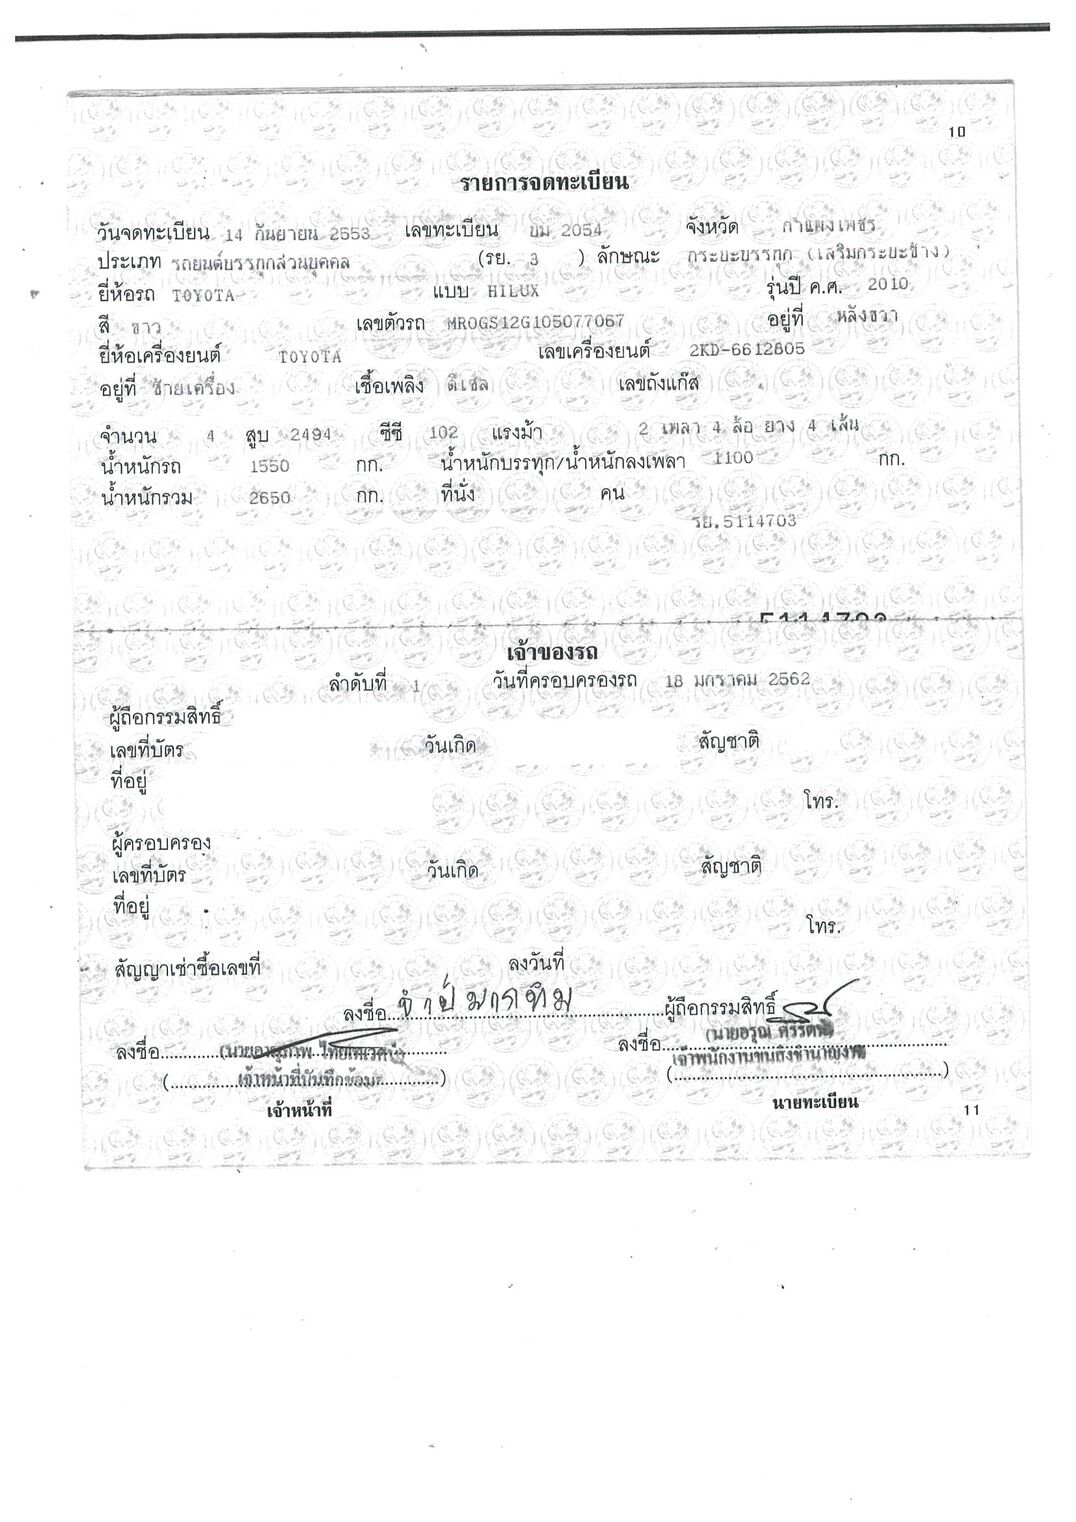 10
รายการจดทะเบียน
วันจดทะเบียน 14 กันยายน 2553 เลขทะเบียน บม 2054 จังหวัด กำแพงเพชร
ประเภท รถยนต์บรรทุกส่วนบุคคล (รย. 3 ) ลักษณะ กระบะบรรทุก (เสริมกระบะข้าง)
ยี่ห้อรถ TOYOTA แบบ HILUX รุ่นปี ค.ศ. 2010
สี ขาว เลขตัวรถ MR0GS12G105077067 อยู่ที่ หลังขวา
ยี่ห้อเครื่องยนต์ TOYOTA เลขเครื่องยนต์ 2KD-6612805
อยู่ที่ ซ้ายเครื่อง เชื้อเพลิง ดีเซล เลขถังแก๊ส
จำนวน 4 สูบ 2494 ซีซี 102 แรงม้า 2 เพลา 4 ล้อ ยาง 4 เส้น
น้ำหนักรถ 1550 กก. น้ำหนักบรรทุก/น้ำหนักลงเพลา 1100 กก.
น้ำหนักรวม 2650 กก. ที่นั่ง คน
รย.5114703
เจ้าของรถ
ลำดับที่ 1 วันที่ครอบครองรถ 18 มกราคม 2562
ผู้ถือกรรมสิทธิ์
เลขที่บัตร วันเกิด สัญชาติ
ที่อยู่
โทร.
ผู้ครอบครอง
เลขที่บัตร วันเกิด สัญชาติ
ที่อยู่
โทร.
สัญญาเช่าซื้อเลขที่ ลงวันที่
ลงชื่อ ผู้ถือกรรมสิทธิ์
ลงชื่อ ลงชื่อ (นายอรุณ
เจ้าหน้าที่บันทึกข้อมูล เจ้าพนักงานขนส่งชำนาญงาน
เจ้าหน้าที่ นายทะเบียน
11